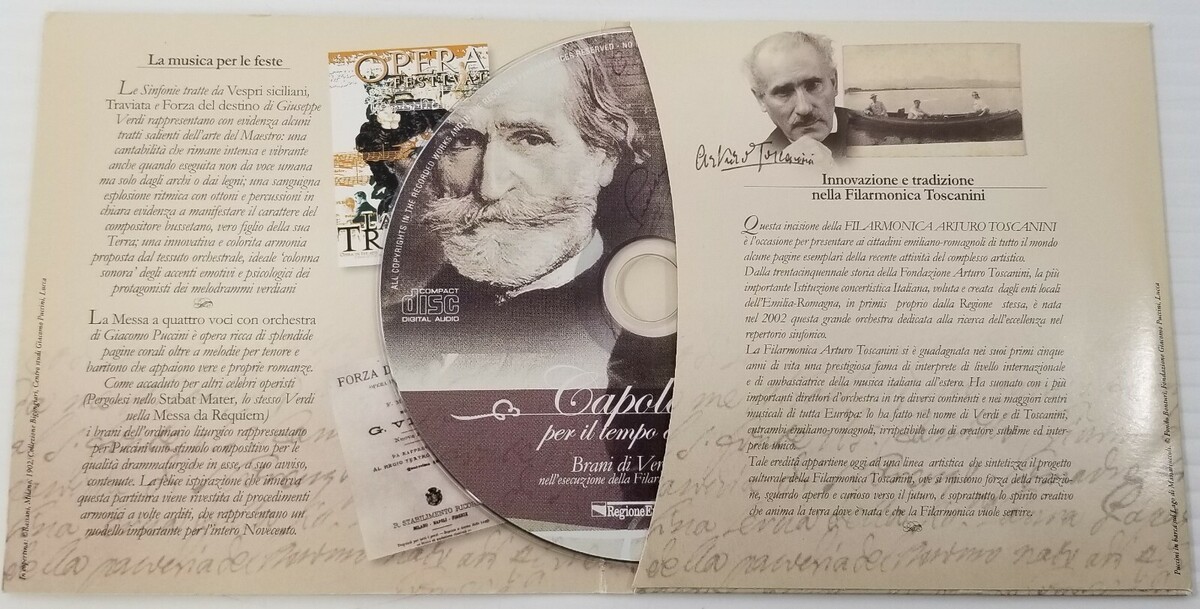 La musica per le feste
Le Sinfonie tratte da Vespri siciliani,
Traviata e Forza del destino di Giuseppe
Verdi rappresentano con evidenza alcuni
tratti salienti dell'arte del Maestro: una
cantabilità che rimane intensa e vibrante
anche quando eseguita non da voce umana
ma solo dagli archi o dai legni; una sanguigna
esplosione ritmica con ottoni e percussioni in
chiara evidenza a manifestare il carattere del
compositore bussetano, vero figlio della sua
Terra; una innovativa e colorita armonia
proposta dal tessuto orchestrale, ideale 'colonna
sonora' degli accenti emotivi e psicologici dei
protagonisti dei melodrammi verdiani
La Messa a quattro voci con orchestra
di Giacomo Puccini è opera ricca di splendide
pagine corali oltre a melodie per tenore e
baritono che appaiono vere e proprie romanze.
Come accaduto per altri celebri operisti
(Pergolesi nello Stabat Mater, lo stesso Verdi
nella Messa da Requiem)
i brani dell'ordinario liturgico rappresentano
per Puccini uno stimolo compositivo per le
qualità drammaturgiche in esse, a suo avviso,
contenute. La felice ispirazione che innerva
questa partitura viene rivestita di procedimenti
armonici a volte arditi, che rappresentano un
modello importante per l'intero Novecento.
OPERA
FESTIVAL
TR
FORZA D
G. V
AL REGIO TEATRO
R. STABILIMENTO RICO
MILANO - NAPOLI - FIRENZE
ALL COPYRIGHTS IN THE RECORDED WORKS AND
RESERVED - NO
COMPACT
disc
DIGITAL AUDIO
Capol
per il tempo
Brani di Ver
nell'esecuzione della Filar
RegioneE
Arturo Toscanini
Innovazione e tradizione
nella Filarmonica Toscanini
Questa incisione della FILARMONICA ARTURO TOSCANINI
è l'occasione per presentare ai cittadini emiliano-romagnoli di tutto il mondo
alcune pagine esemplari della recente attività del complesso artistico.
Dalla trentacinquennale storia della Fondazione Arturo Toscanini, la più
importante Istituzione concertistica Italiana, voluta e creata dagli enti locali
dell'Emilia-Romagna, in primis proprio dalla Regione stessa, è nata
nel 2002 questa grande orchestra dedicata alla ricerca dell'eccellenza nel
repertorio sinfonico.
La Filarmonica Arturo Toscanini si è guadagnata nei suoi primi cinque
anni di vita una prestigiosa fama di interprete di livello internazionale
e di ambasciatrice della musica italiana all'estero. Ha suonato con i più
importanti direttori d'orchestra in tre diversi continenti e nei maggiori centri
musicali di tutta Europa: lo ha fatto nel nome di Verdi e di Toscanini,
entrambi emiliano-romagnoli, irripetibile duo di creatore sublime ed inter-
prete unico.
Tale eredità appartiene oggi ad una linea artistica che sintetizza il progetto
culturale della Filarmonica Toscanini, ove si uniscono forza della tradizio-
ne, sguardo aperto e curioso verso il futuro, e soprattutto lo spirito creativo
che anima la terra dove è nata e che la Filarmonica vuole servire.